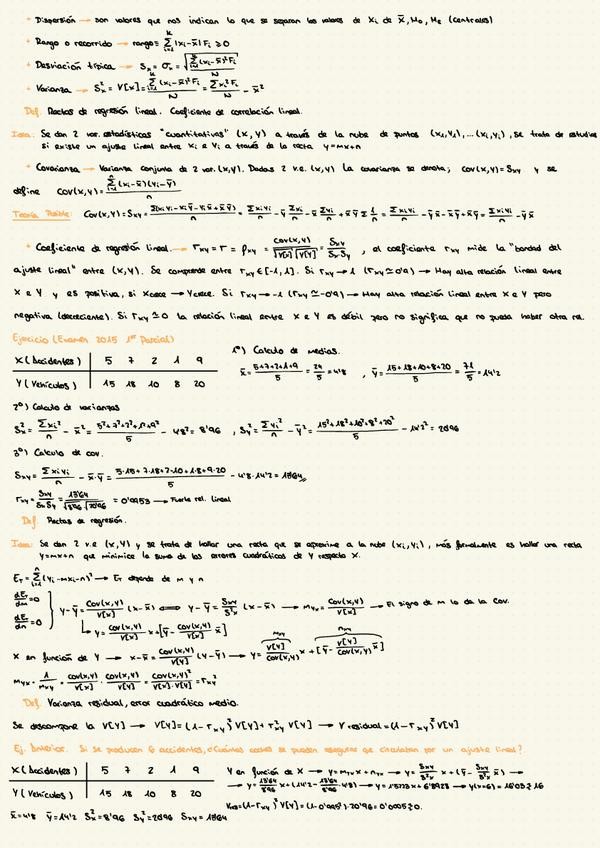 + Dispersión → son valores que nos indican lo que se separan los valores de Xi de x̄, Mo, Me (Centrales)
+ Rango o recorrido → rango = Σ(i=1..k) |xi-x̄| Fi ≥ 0
+ Desviación típica → Sx = σx = √(Σ(i=1..k) (xi-x̄)² Fi / N)
+ Varianza → Sx² = V[x] = Σ(i=1..k) (xi-x̄)² Fi / N = Σ xi² Fi / N - x̄²
Def. Rectas de regresión lineal. Coeficiente de correlación lineal.
Idea: Se dan 2 var. estadísticas "cuantitativas" (X,Y) a través de la nube de puntos (x1,y1),...(xi,yi), se trata de estudiar
si existe un ajuste lineal entre Xi e Yi a través de la recta y=mx+n
+ Covarianza → Varianza conjunta de 2 var. (X,Y). Dadas 2 v.e. (X,Y) la covarianza se denota; cov(X,Y)=Sxy y se
define cov(X,Y) = Σ(i=1..n) (xi-x̄)(yi-ȳ) / n
Teoría Posible: Cov(X,Y) = Sxy = Σ(xiyi - xiȳ - yix̄ + x̄ȳ) / n = Σxiyi/n - ȳ Σxi/n - x̄ Σyi/n + x̄ȳ Σ 1/n = Σxiyi/n - ȳx̄ - x̄ȳ + x̄ȳ = Σxiyi/n - ȳx̄
+ Coeficiente de regresión lineal → rxy = r = ρxy = cov(x,y) / √V[x]√V[Y] = Sxy / SxSy, el coeficiente rxy mide la "bondad del
ajuste lineal" entre (X,Y). Se comprende entre rxy ∈ [-1,1]. Si rxy → 1 (rxy ≃ 0'9) → Hay alta relación lineal entre
X e Y y es positiva, si Xcrece → Ycrece. Si rxy → -1 (rxy ≃ -0'9) → Hay alta relación lineal entre X e Y pero
negativa (decreciente). Si rxy ≃ 0 la relación lineal entre X e Y es débil pero no significa que no pueda haber otra rel.
Ejercicio (Examen 2015 1er Parcial)
X (Accidentes) 5 7 2 1 9
Y (Vehículos) 15 18 10 8 20
1º) Calculo de medias.
x̄ = 5+7+2+1+9 / 5 = 24/5 = 4'8, ȳ = 15+18+10+8+20 / 5 = 71/5 = 14'2
2º) Calculo de varianzas
Sx² = Σxi²/n - x̄² = 5²+7²+2²+1²+9² / 5 - 4'8² = 8'96, Sy² = Σyi²/n - ȳ² = 15²+18²+10²+8²+20² / 5 - 14'2² = 20'96
3º) Calculo de cov.
Sxy = Σxiyi/n - x̄·ȳ = 5·15+7·18+2·10+1·8+9·20 / 5 - 4'8·14'2 = 13'64
rxy = Sxy / SxSy = 13'64 / √8'96 √20'96 = 0'9953 → Fuerte rel. lineal
Def. Rectas de regresión.
Idea: Se dan 2 v.e (X,Y) y se trata de hallar una recta que se aproxime a la nube (xi,yi), más formalmente es hallar una recta
y=mx+n que minimice la suma de los errores cuadráticos de Y respecto X.
ET = Σ(i=1..n) (yi-mxi-n)² → ET depende de m y n
dET/dm = 0
dET/dn = 0
} y-ȳ = Cov(X,Y)/V[x] (x-x̄) ⟺ y-ȳ = Sxy/Sx² (x-x̄) → myx = Cov(X,Y)/V[x] → El signo de m lo da la Cov.
↳ y = Cov(X,Y)/V[x] x + [ȳ - Cov(X,Y)/V[x] x̄]
X en función de Y → x-x̄ = Cov(X,Y)/V[Y] (y-ȳ) → y = V[Y]/Cov(X,Y) x + [ȳ - V[Y]/Cov(X,Y) x̄]
mxy nxy
myx · 1/mxy = cov(X,Y)/V[x] · cov(X,Y)/V[Y] = cov(X,Y)²/V[x]·V[Y] = rxy²
Def. Varianza residual, error cuadrático medio.
Se descompone la V[Y] → V[Y] = (1-rxy²) V[Y] + rxy² V[Y] → V residual = (1-rxy²) V[Y]
Ej. Anterior. Si se producen 6 accidentes, ¿Cuántos coches se pueden asegurar que circulaban por un ajuste lineal?
X (Accidentes) 5 7 2 1 9
Y (Vehículos) 15 18 10 8 20
x̄=4'8 ȳ=14'2 Sx²=8'96 Sy²=20'96 Sxy=13'64
Y en función de X → y = myx x + nyx → y = Sxy/S²x x + (ȳ - Sxy/S²x x̄) →
→ y = 13'64/8'96 x + (14'2 - 13'64/8'96 · 4'8) → y = 1'5223x + 6'8928 → y(x=6) = 16'03 ≃ 16
VRes = (1-rxy²) V[Y] = (1-0'995²)·20'96 = 0'0095 ≃ 0.